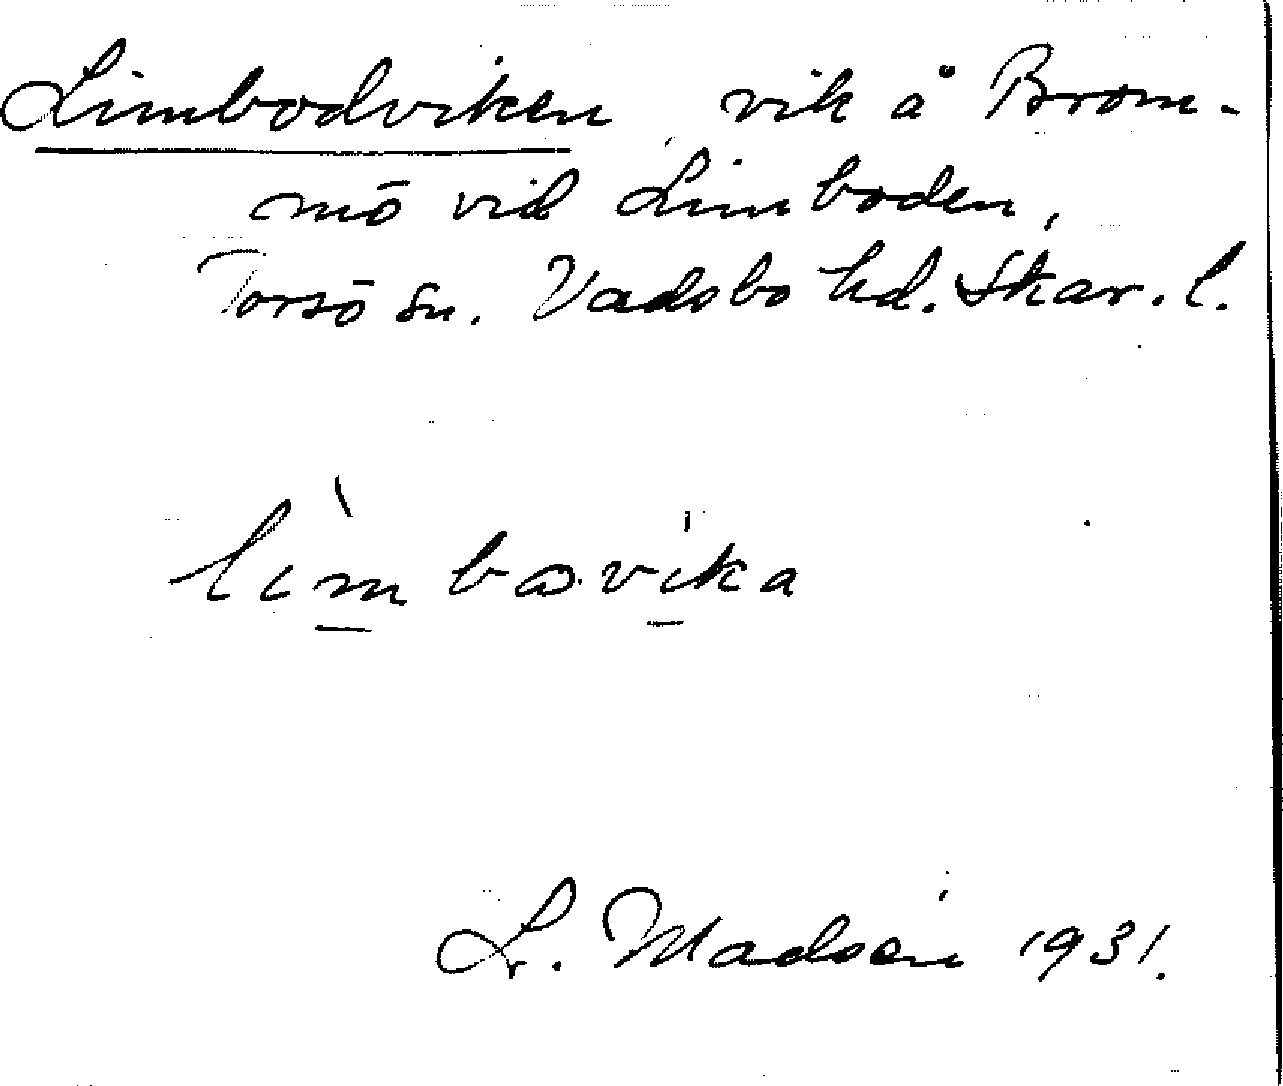 Limbodviken, vik å Brom-
mö vid Limboden,
Torsö sn. Vadsbo hd. Skar. l.
L. Madsén 1931.